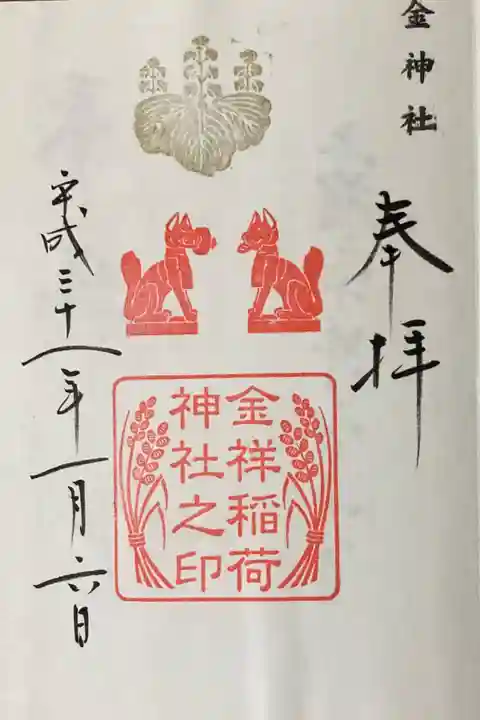 金神社
奉拝
金祥稲荷
神社之印
平成三十一年一月六日